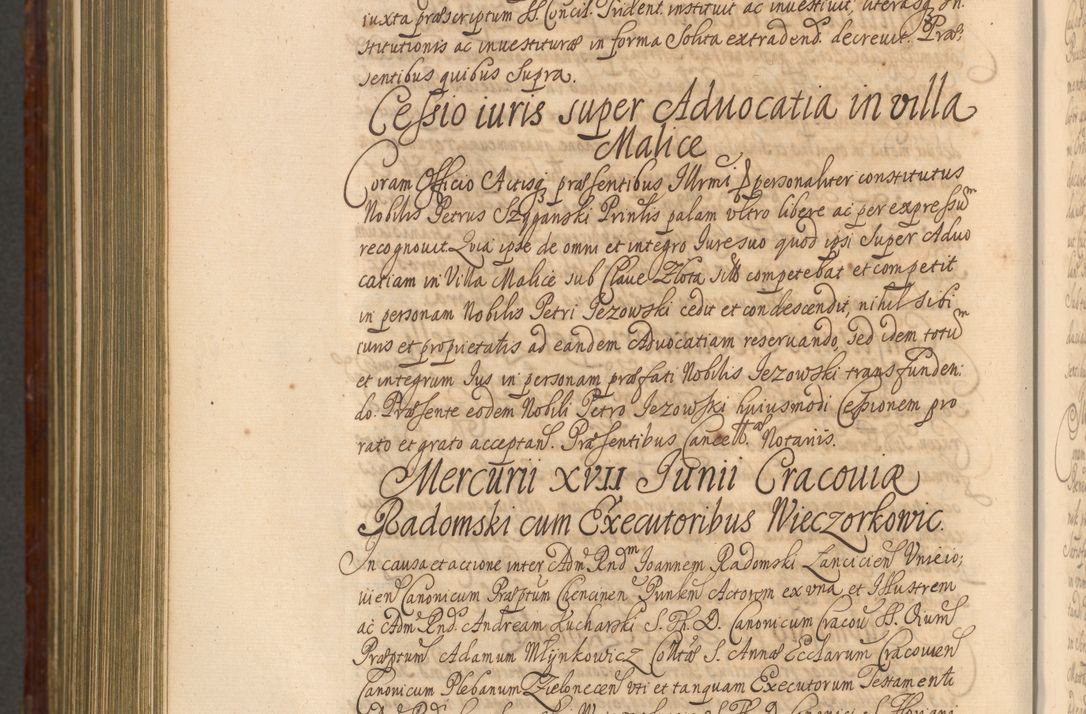 iuxta præscriptum SS. Concil. Trident. instituit ac investivit, literasq. In-
stitutionis ac investituræ in forma solita extradend. decrevit. Præ-
sentibus quibus supra.
Cessio iuris super Advocatia in villa
Malice
Coram Officio Actisq. præsentibus Illrmi personaliter constitutus
Nobilis Petrus Szyganski Prinlis palam vltro libere ac per expressum
recognovit. Quia ipse de omni et integro Iure suo quod ipsi super Advo
catiam in Villa Malice sub Clave Złota sitte competebat et competit
in personam Nobilis Petri Jezowski cedit et condescendit, nihil sibi
iuris et proprietatis ad eandem Advocatiam reservando, sed idem totum
et integrum Ius in personam præfati Nobilis Jezowski transfunden-
do. Præsente eodem Nobili Petro Jezowski huiusmodi Cessionem pro
rato et grato acceptan. Præsentibus Cancell. Notariis.
Mercurii XVII Junii Cracoviæ
Radomski cum Executoribus Wieczorkowic.
In causa et actione inter Adm. Rndm Joannem Radomski Lancicien Vnieio-
vien Canonicum Præptum Actorem ex vna et Illustrem
ac Adm. Rnd. Andream Kucharski S. Th. D. Canonicum Cracov. SS. Oium
Præptum Adamum Młynkowicz Colltæ S. Annæ Ecclarum Cracovien
Canonicum Plebanum Zieloncen vti et tanquam Executorum Testamenti